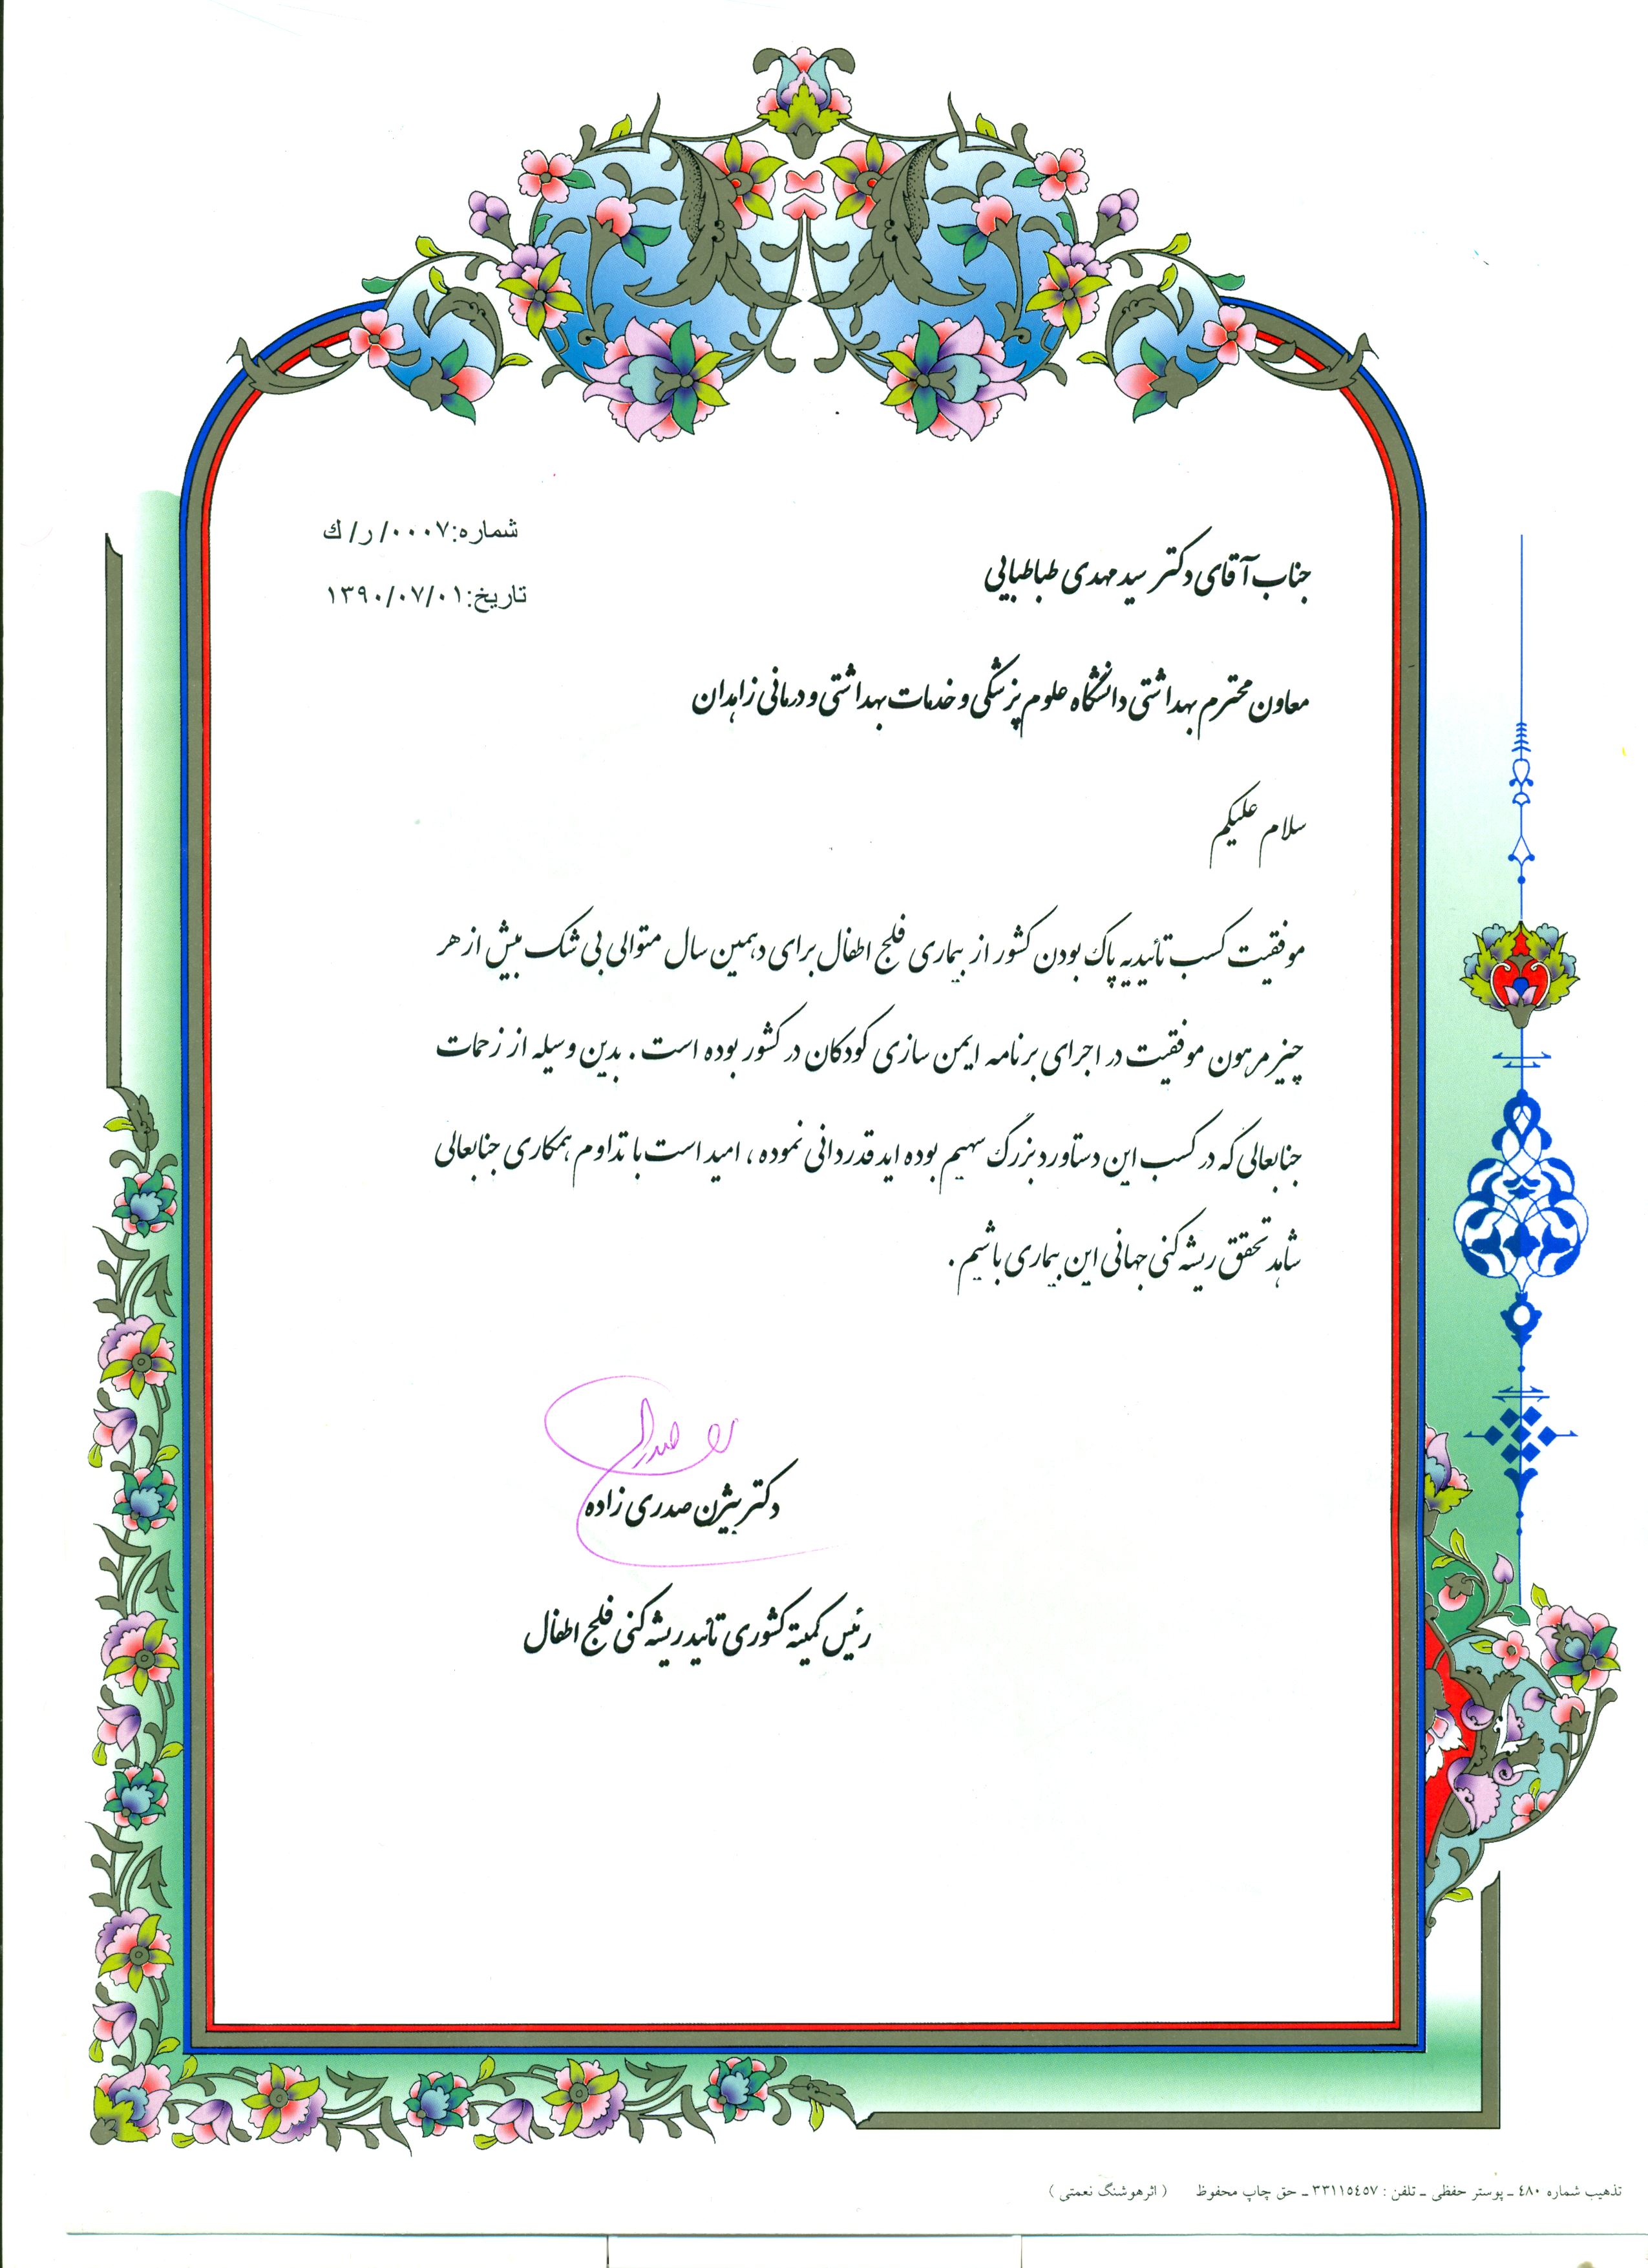 شماره:۰۰۰۷/ ر/ ك
تاریخ:۱۳۹۰/۰۷/۰۱
جناب آقای دکتر سید مهدی طباطبایی
معاون محترم بهداشتی دانشگاه علوم پزشکی و خدمات بهداشتی و درمانی زاهدان
سلام علیکم
موفقیت کسب تأئیدیه پاک بودن کشور از بیماری فلج اطفال برای دهمین سال متوالی بی شک بیش از هر
چیز مرهون موفقیت در اجرای برنامه ایمن سازی کودکان در کشور بوده است . بدین وسیله از زحمات
جنابعالی که در کسب این دستاورد بزرگ سهیم بوده اید قدردانی نموده ، امید است با تداوم همکاری جنابعالی
شاهد تحقق ریشه کنی جهانی این بیماری باشیم .
دکتر بیژن صدری زاده
رئیس کمیته کشوری تائید ریشه کنی فلج اطفال
تذهیب شماره ٤٨٠ ـ پوستر حفظی ـ تلفن : ٣٣١١٥٤٥٧ ـ حق چاپ محفوظ ( اثرهوشنگ نعمتی )